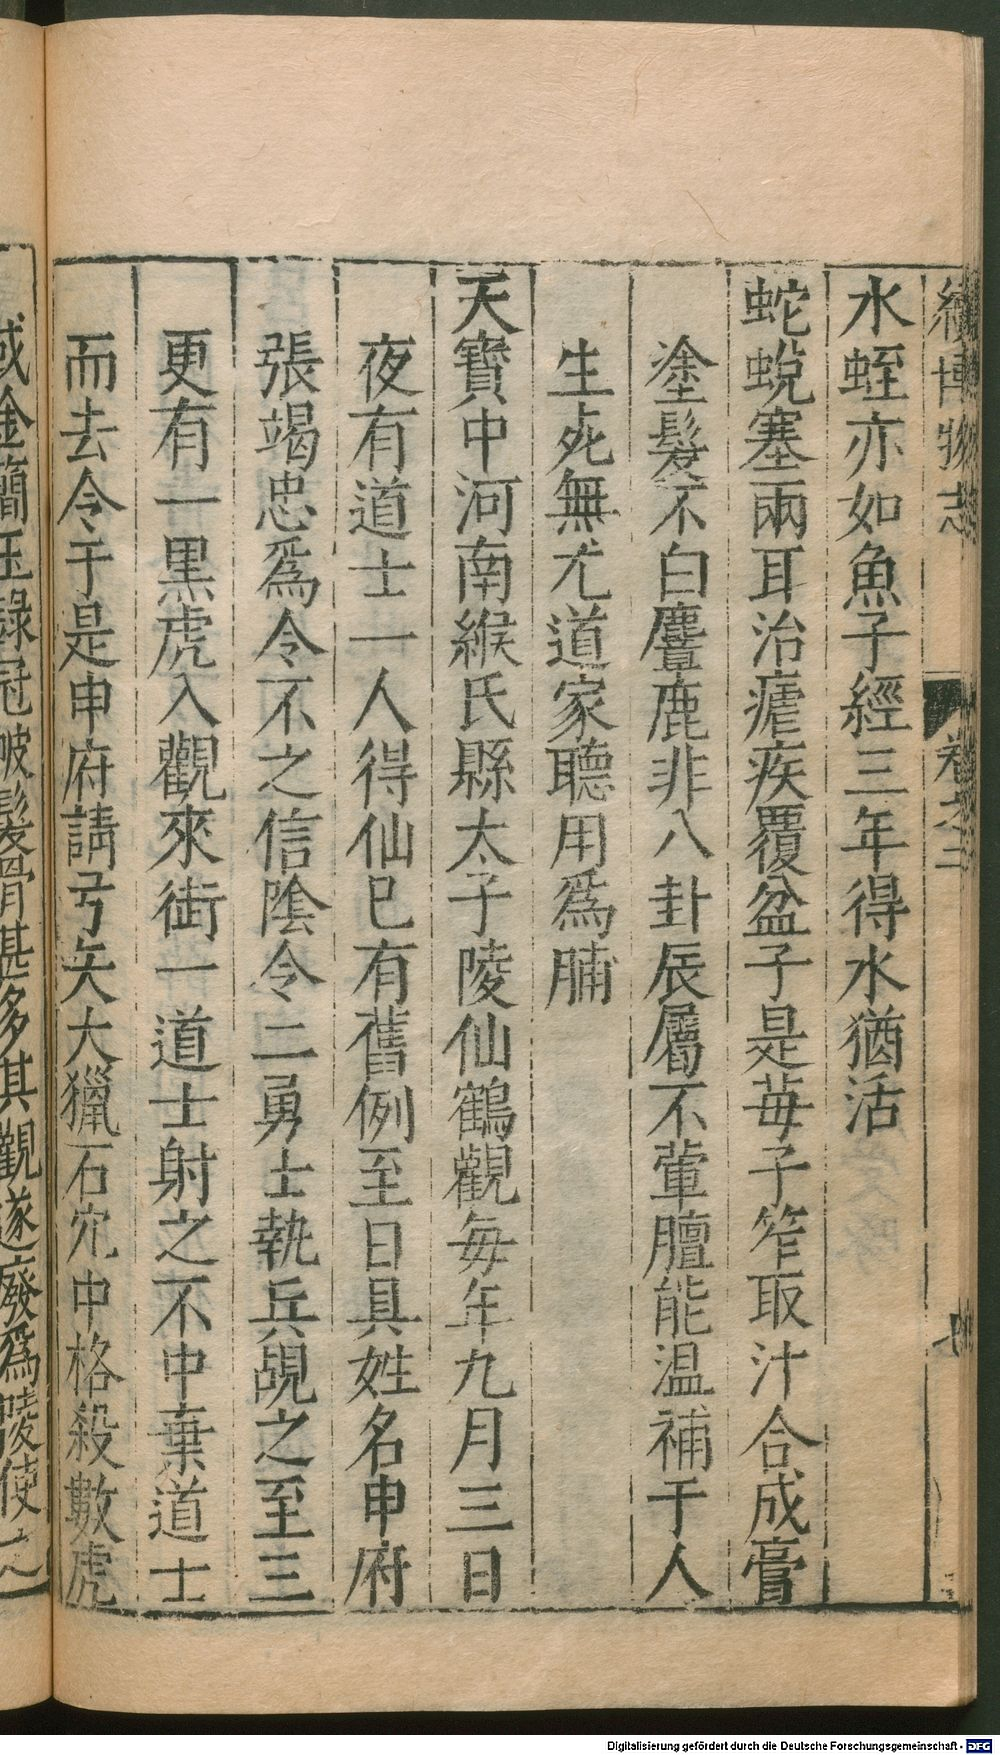 續博物志 卷之二
水蛭亦如魚子經三年得水猶活
蛇蛻塞兩耳治瘧疾覆盆子是苺子笮取汁合成膏
塗髮不白麞鹿非八卦辰屬不葷膻能温補于人
生死無尤道家聽用爲脯
天寶中河南緱氏縣太子陵仙鶴觀每年九月三日
夜有道士一人得仙已有舊例至日具姓名申府
張竭忠爲令不之信陰令二勇士執兵覘之至三
更有一黑虎入觀來銜一道士射之不中棄道士
而去令于是申府請弓矢大獵石穴中格殺數虎
或金簡玉籙冠帔髮骨甚多其觀遂廢爲陵使
Digitalisierung gefördert durch die Deutsche Forschungsgemeinschaft - DFG